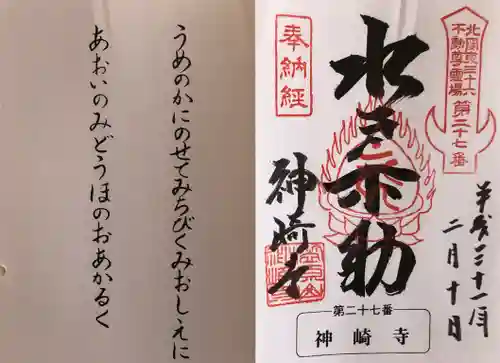 うめのかにのせてみちびくみおしえに
あおいのみどうほのおあかるく
北関東三十六
不動尊霊場
第二十七番
奉納経
水き不動
神崎寺
平成三十一年
二月十日
第二十七番
神崎寺